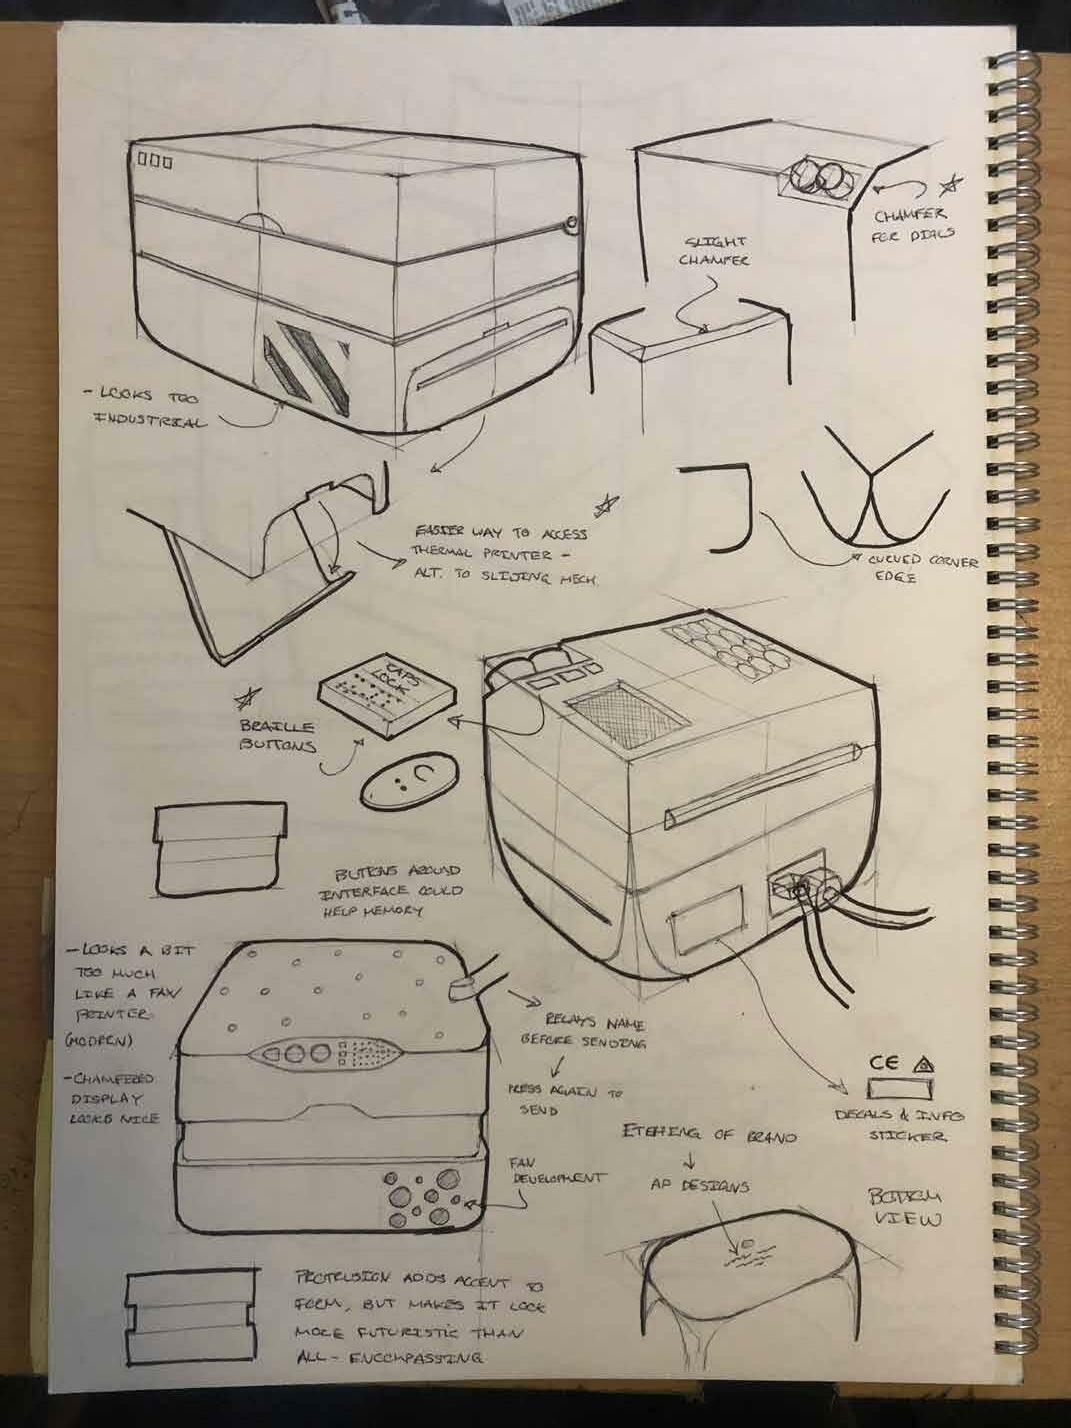 CHAMFER
FOR DIALS
SLIGHT
CHAMFER
- LOOKS TOO
INDUSTRIAL
EASIER WAY TO ACCESS
THERMAL PRINTER -
ALT. TO SLIDING MECH.
CURVED CORNER
EDGE
CAPS
LOCK
BRAILLE
BUTTONS
BUTTONS AROUND
INTERFACE COULD
HELP MEMORY
- LOOKS A BIT
TOO MUCH
LIKE A FAX
PRINTER
(MODERN)
- CHAMFERED
DISPLAY
LOOKS NICE
RELAYS NAME
BEFORE SENDING
PRESS AGAIN TO
SEND
CE
DECALS & INFO
STICKER
ETCHING OF BRAND
AP DESIGNS
FAN
DEVELOPMENT
BOTTOM
VIEW
PROTRUSION ADDS ACCENT TO
FORM, BUT MAKES IT LOOK
MORE FUTURISTIC THAN
ALL-ENCOMPASSING